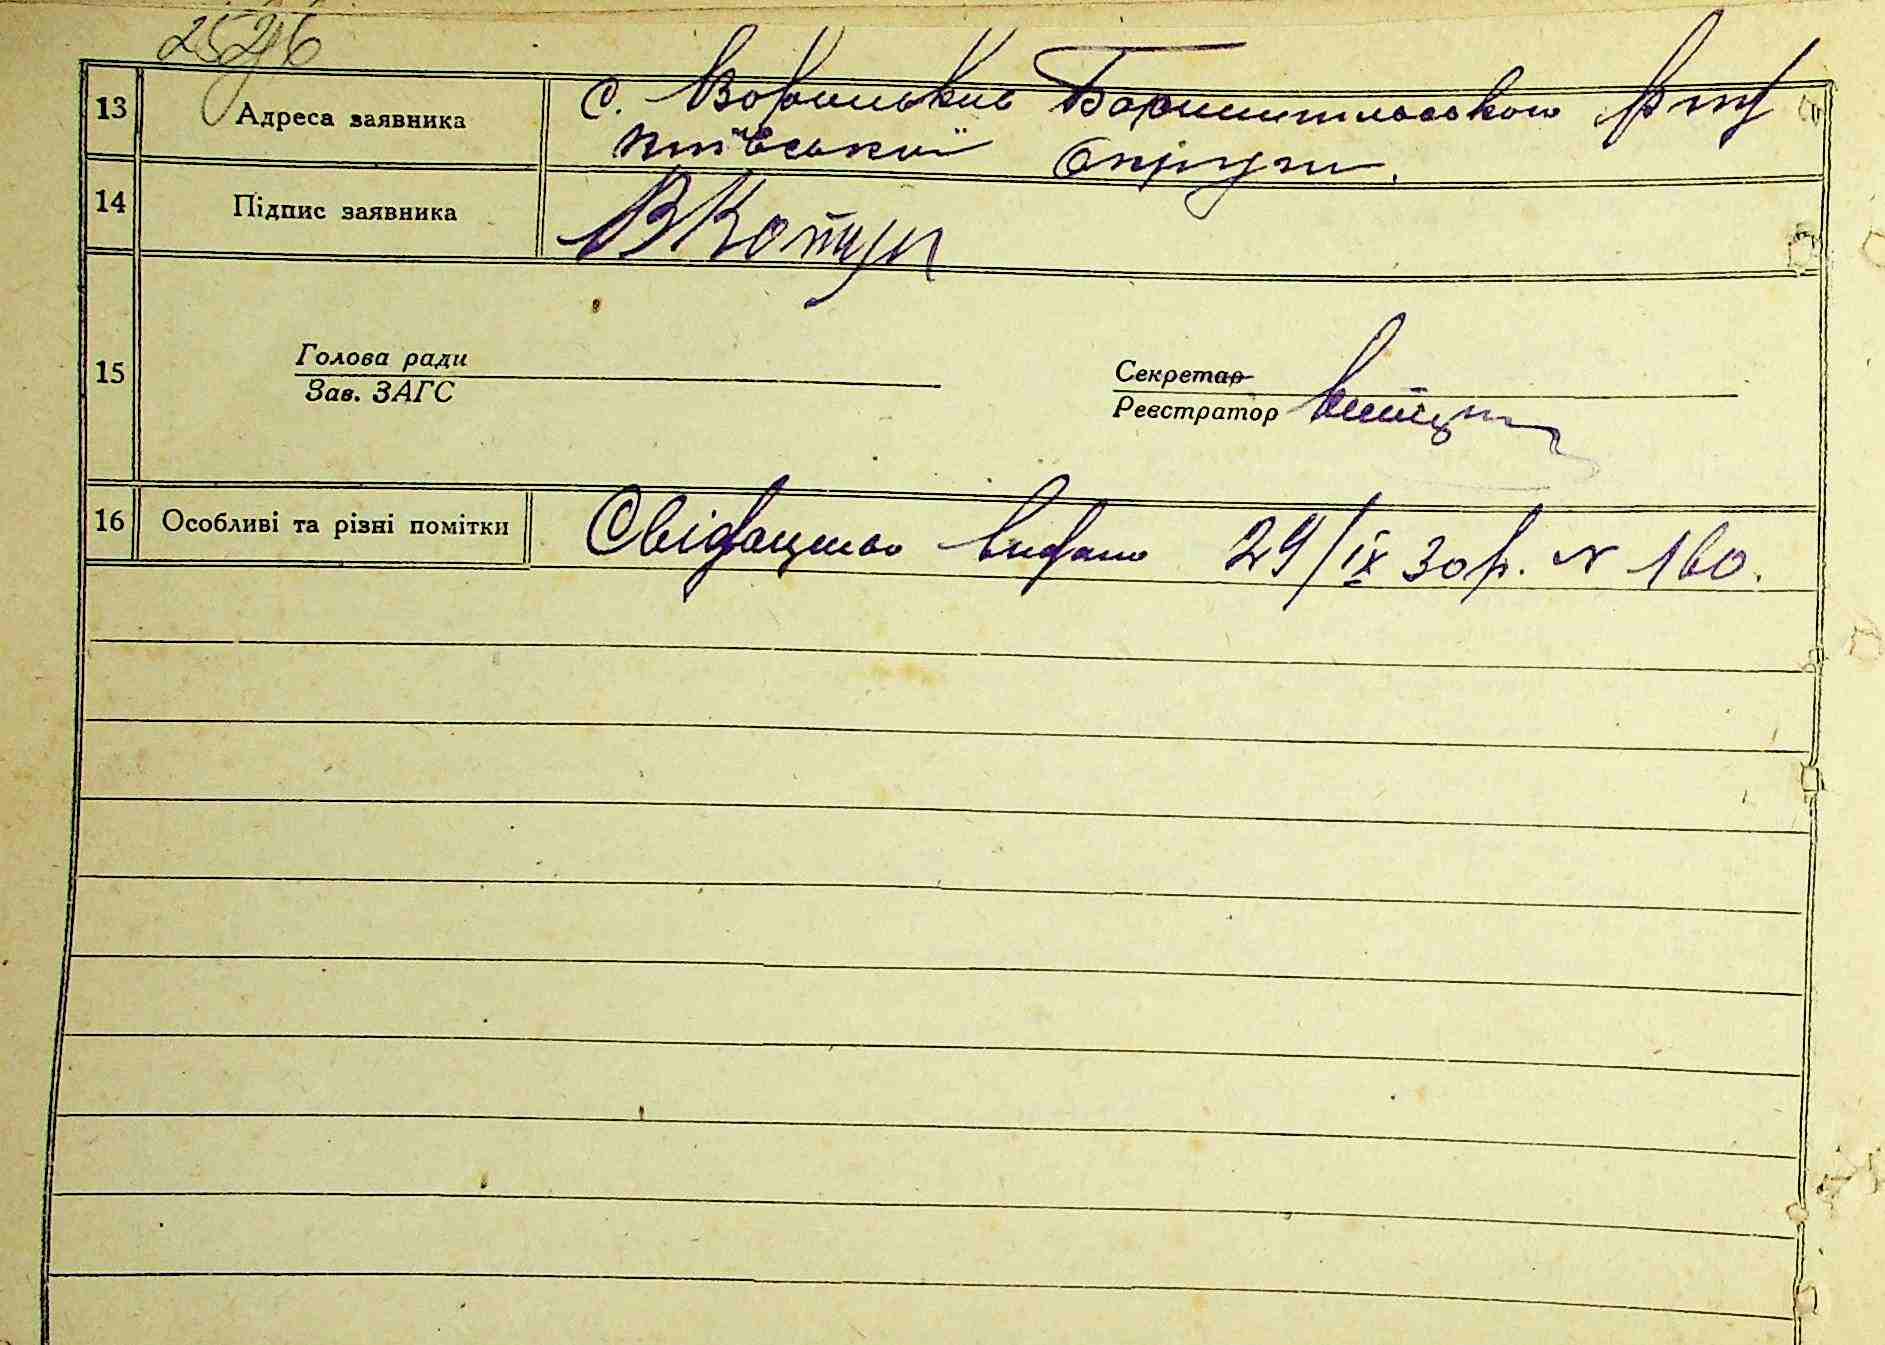 2526
13 Адреса заявника с. Вороньків Бориспільського р-ну
київської округи.
14 Підпис заявника ВКотул
15 Голова ради
Зав. ЗАГС
Секретар
Реєстратор
16 Особливі та різні помітки Свідоцтво видано 29/IX 30 р. N 160.